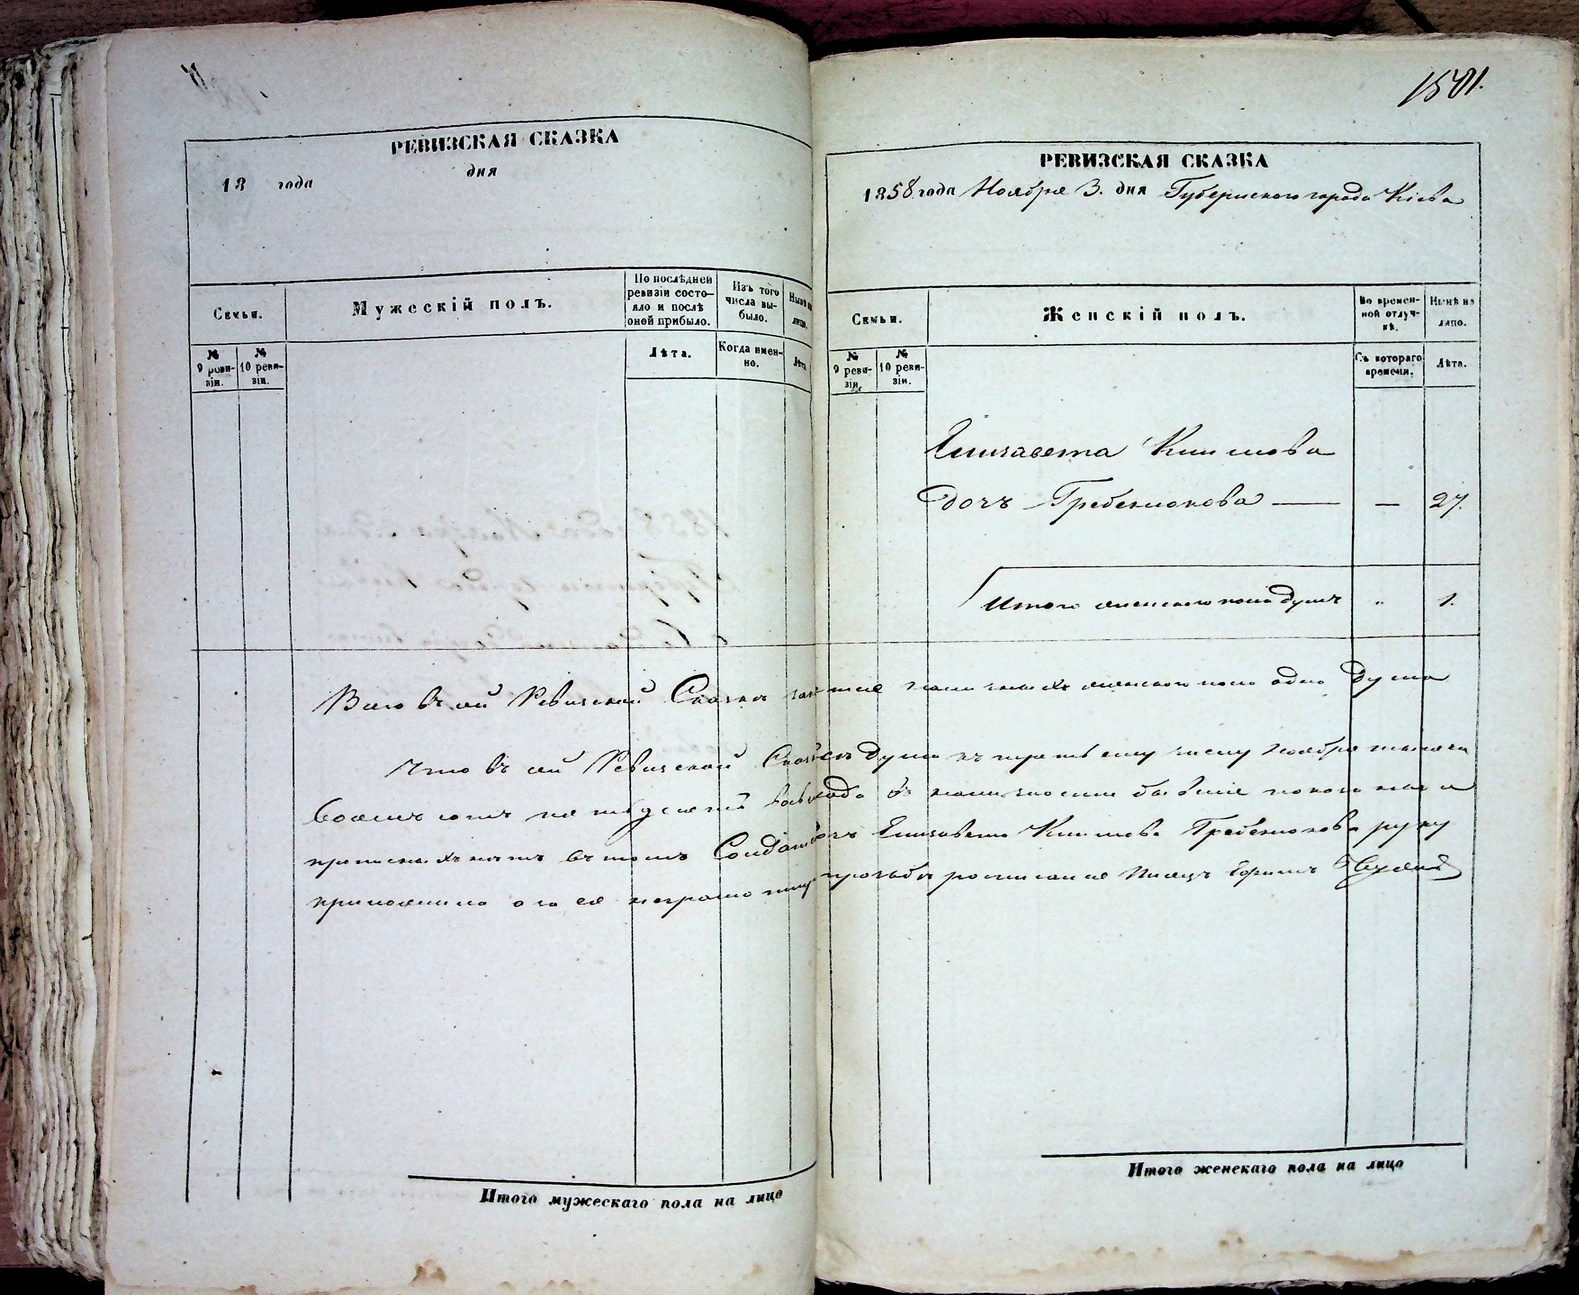 РЕВИЗСКАЯ СКАЗКА
18 года дня
Семьи.
Мужескій полъ.
По послѣдней ревизіи состояло и послѣ оной прибыло.
Изъ того числа выбыло.
Нынѣ на лицо.
№ 9 ревизіи.
№ 10 ревизіи.
Лѣта.
Когда именно.
Лѣта
Итого мужескаго пола на лицо
1501.
РЕВИЗСКАЯ СКАЗКА
1858 года Ноября 3. дня Губернского города Кіева
Семьи.
Женскій полъ.
Во временной отлучкѣ.
Нынѣ на лицо.
№ 9 ревизіи.
№ 10 ревизіи.
Съ котораго времени.
Лѣта.
Елизавета Климова
дочь Гребенюкова — — 27.
Итого женского пола душъ " 1.
Всего въ сей Ревизской Сказкѣ наличныхъ женского пола одна душа
Что въ сей Ревизской Сказкѣ душа къ третьему числу Ноября
въ наличности бывшіе
въ томъ Солдатская дочь Елизавета Климова Гребенюкова руку
приложила а за ея неграмотную прозьбы росписался Писецъ
Итого женскаго пола на лицо